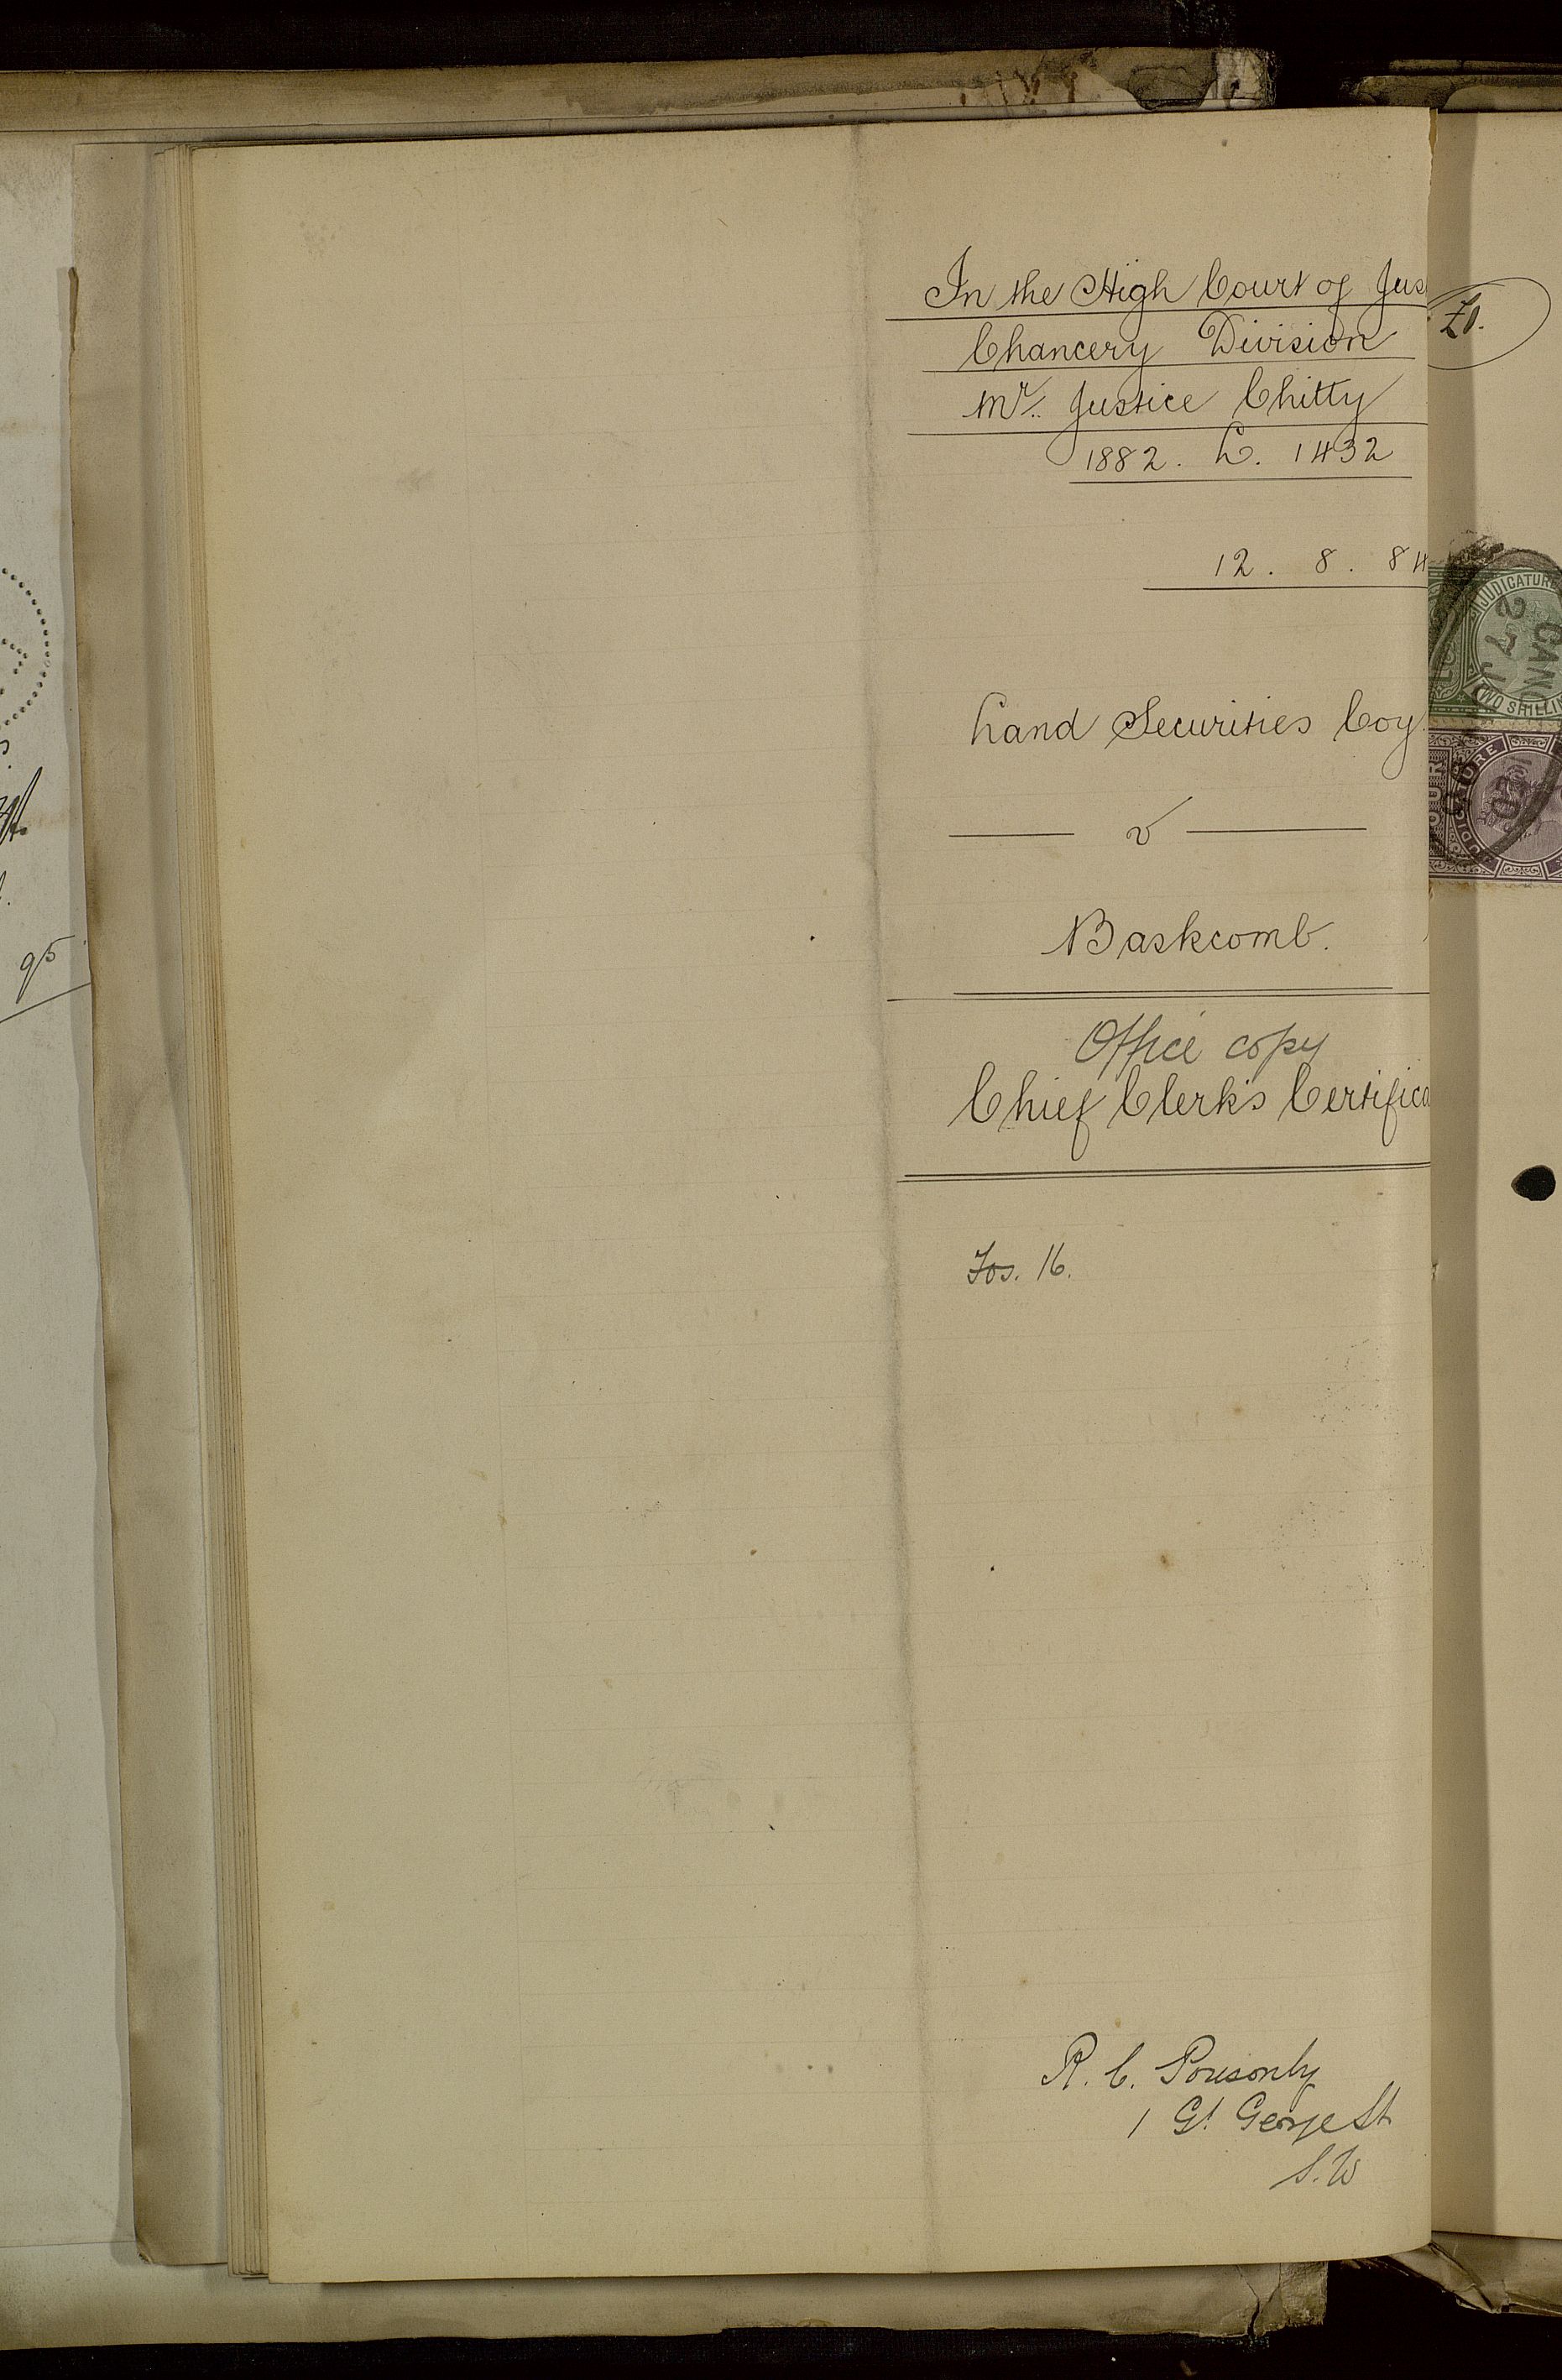 In the High Court of Jus
Chancery Division
Mr. Justice Chitty
1882. L. 1432
12. 8. 84
Land Securities Coy.
v
Baskcomb.
Office copy
Chief Clerk's Certifica
Fos. 16.
R. C. Ponsonby
1 Gt. George St
S.W
95
JUDICATURE
TWO SHILLIN
CANC
27 J
JUDICATURE